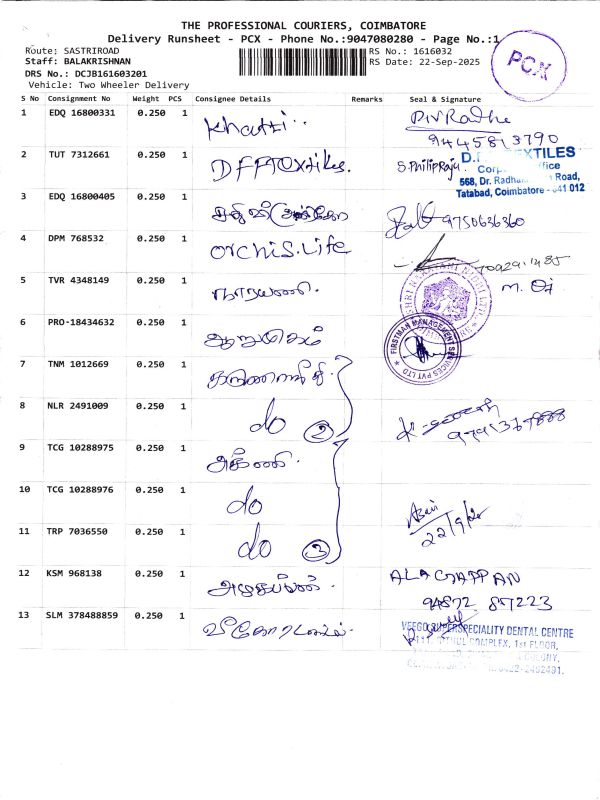 THE PROFESSIONAL COURIERS, COIMBATORE
Delivery Runsheet - PCX - Phone No.:9047080280 - Page No.:1
Route: SASTRIROAD
Staff: BALAKRISHNAN
DRS No.: DCJB161603201
Vehicle: Two Wheeler Delivery
RS No.: 1616032
RS Date: 22-Sep-2025
PCX
S No Consignment No Weight PCS Consignee Details Remarks Seal & Signature
1 EDQ 16800331 0.250 1 Khatti
9445813790
2 TUT 7312661 0.250 1 DFFTextiles. S.Philipraju
TEXTILES
Office
568, Dr. Radha Road,
Tatabad, Coimbatore - 641 012
3 EDQ 16800405 0.250 1 9750636360
4 DPM 768532 0.250 1 orchis.life
5 TVR 4348149 0.250 1 நாராயணி.
6 PRO-18434632 0.250 1 ஆறுமுகம்
FIRSTMAN MANAGEMENT SERVICES PVT LTD
7 TNM 1012669 0.250 1
8 NLR 2491009 0.250 1 do 2
9 TCG 10288975 0.250 1 அக்னி.
10 TCG 10288976 0.250 1 do
11 TRP 7036550 0.250 1 do 3 22/9/25
12 KSM 968138 0.250 1 அழகப்பன். ALAGAPPAN
94872 87223
13 SLM 378488859 0.250 1
VEEGO SUPERSPECIALITY DENTAL CENTRE
COMPLEX, 1st FLOOR,
COLONY,